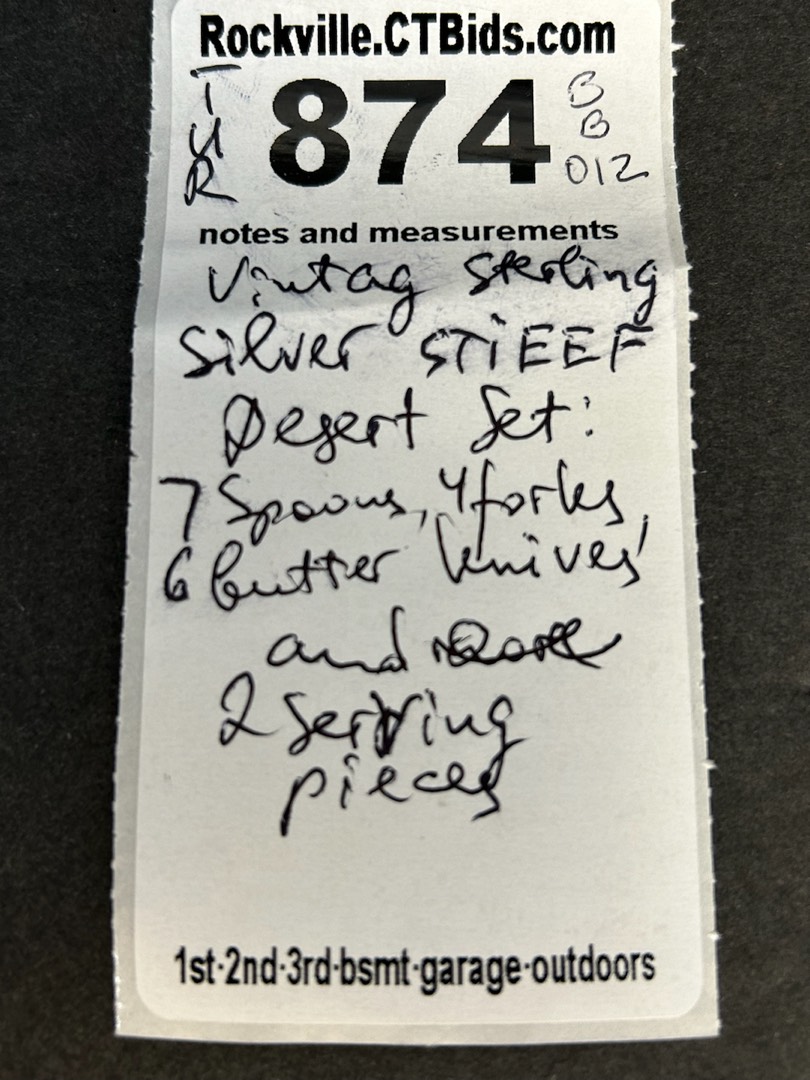 Rockville.CTBids.com
TUR
874
BB012
notes and measurements
Vintag Sterling
Silver STiEEF
Desert Set:
7 Spoons, 4 forks,
6 butter knives
and
2 serving
pieces
1st·2nd·3rd·bsmt·garage·outdoors